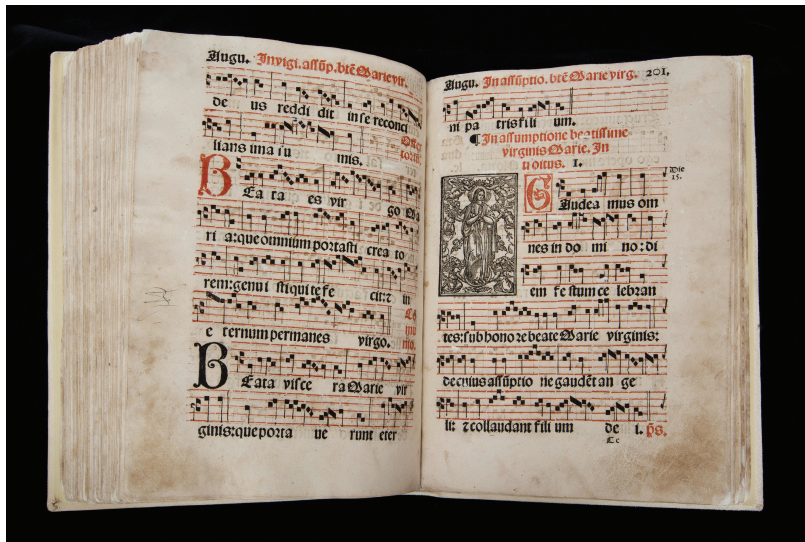 Augu. In vigi. assūp. btē Marie vir.
de us reddi dit in se reconci
lians ima su mis. Offer
toriū.
BEata es vir go Ma
ri a:que omnium portasti crea to
rem:genui sti qui te fe cit:⁊ in
e ternum permanes virgo. Cō
mu
nio.
BEata visce ra Marie vir
ginis:que porta ue runt eter
Augu. In assūptio. btē Marie virg. 201.
ni pa tris fili um.
¶In assumptione beatissime
virginis Marie. In
troitus. 1.
Die
15.
GAudea mus om
nes in do mi no:di
em fe stum ce lebran
tes:sub hono re beate Marie virginis:
de cuius assūptio ne gaudēt an ge
li: ⁊ collaudant fili um de i. p̄s.
Cc